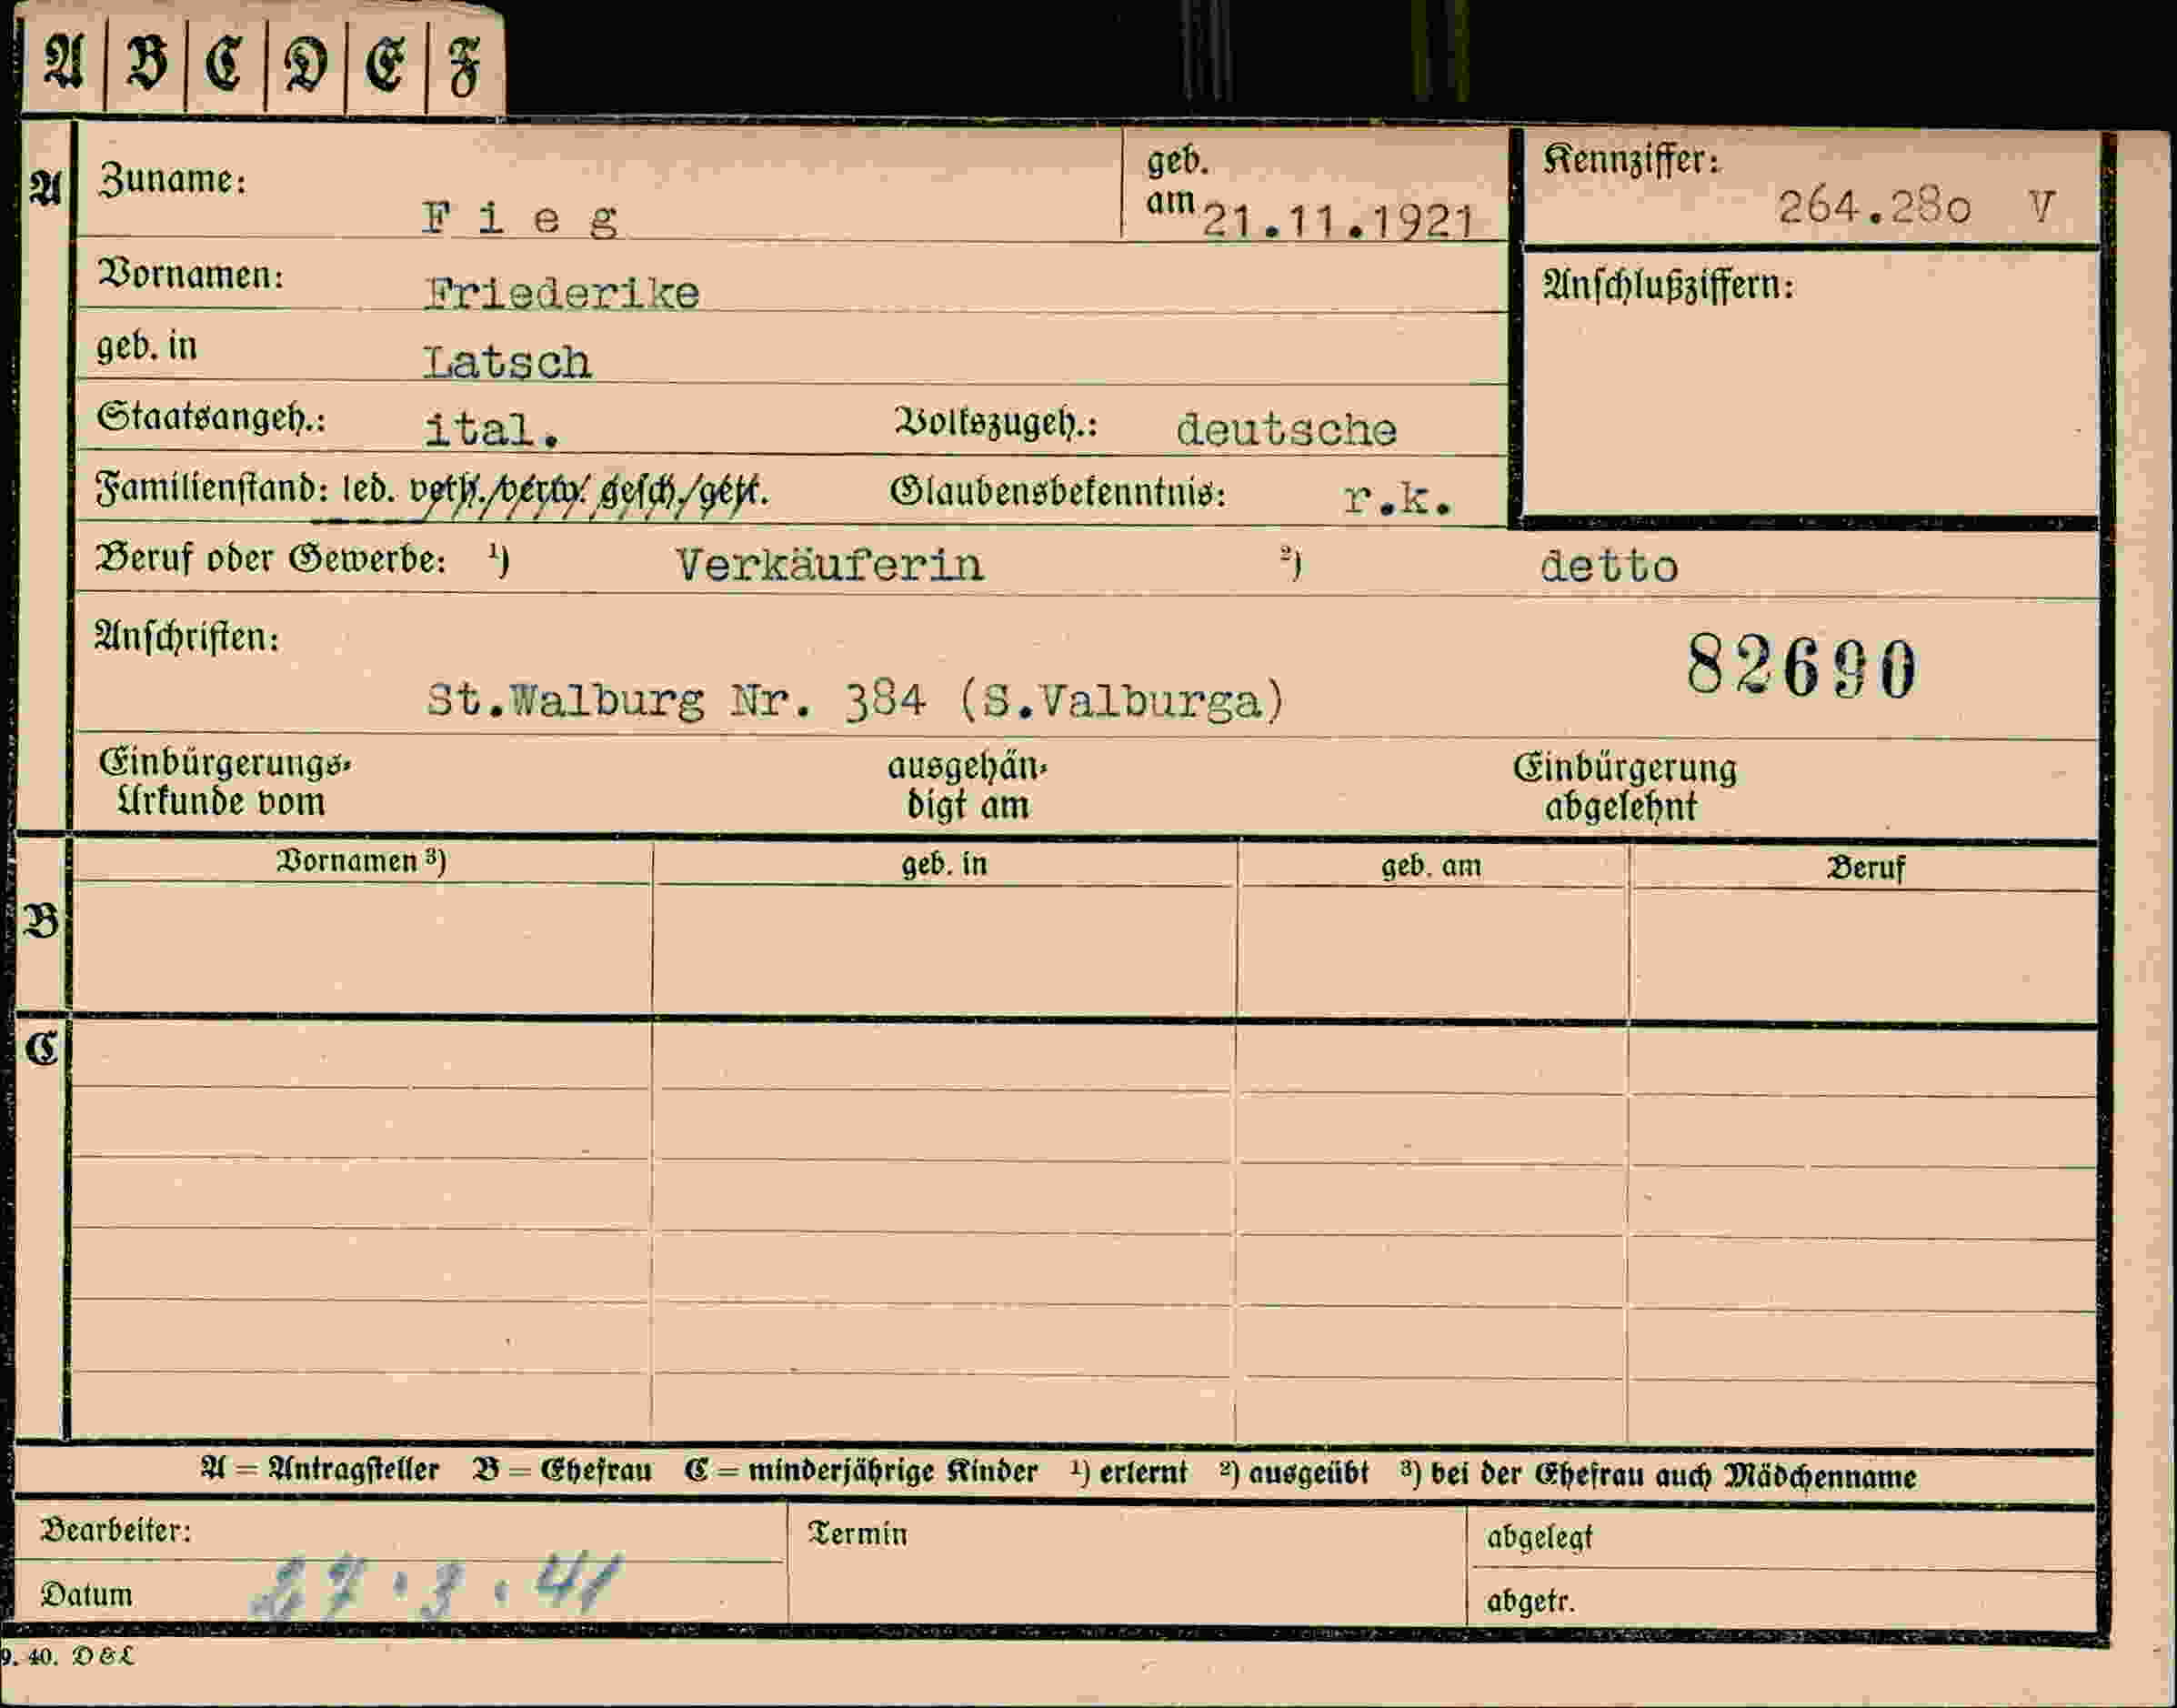 A B C D E F
A Zuname: Fieg geb. am 21.11.1921 Kennziffer: 264.280 V
Vornamen: Friederike Anschlußziffern:
geb. in Latsch
Staatsangeh.: ital. Volkszugeh.: deutsche
Familienstand: led. verh./verw./gesch./getr. Glaubensbekenntnis: r.k.
Beruf oder Gewerbe: ¹) Verkäuferin ²) detto
Anschriften: 82690
St.Walburg Nr. 384 (S.Valburga)
Einbürgerungs- ausgehän- Einbürgerung
Urkunde vom digt am abgelehnt
Vornamen ³) geb. in geb. am Beruf
B
C
A = Antragsteller B = Ehefrau C = minderjährige Kinder ¹) erlernt ²) ausgeübt ³) bei der Ehefrau auch Mädchenname
Bearbeiter: Termin abgelegt
Datum 27.3.41 abgetr.
9. 40. D&L